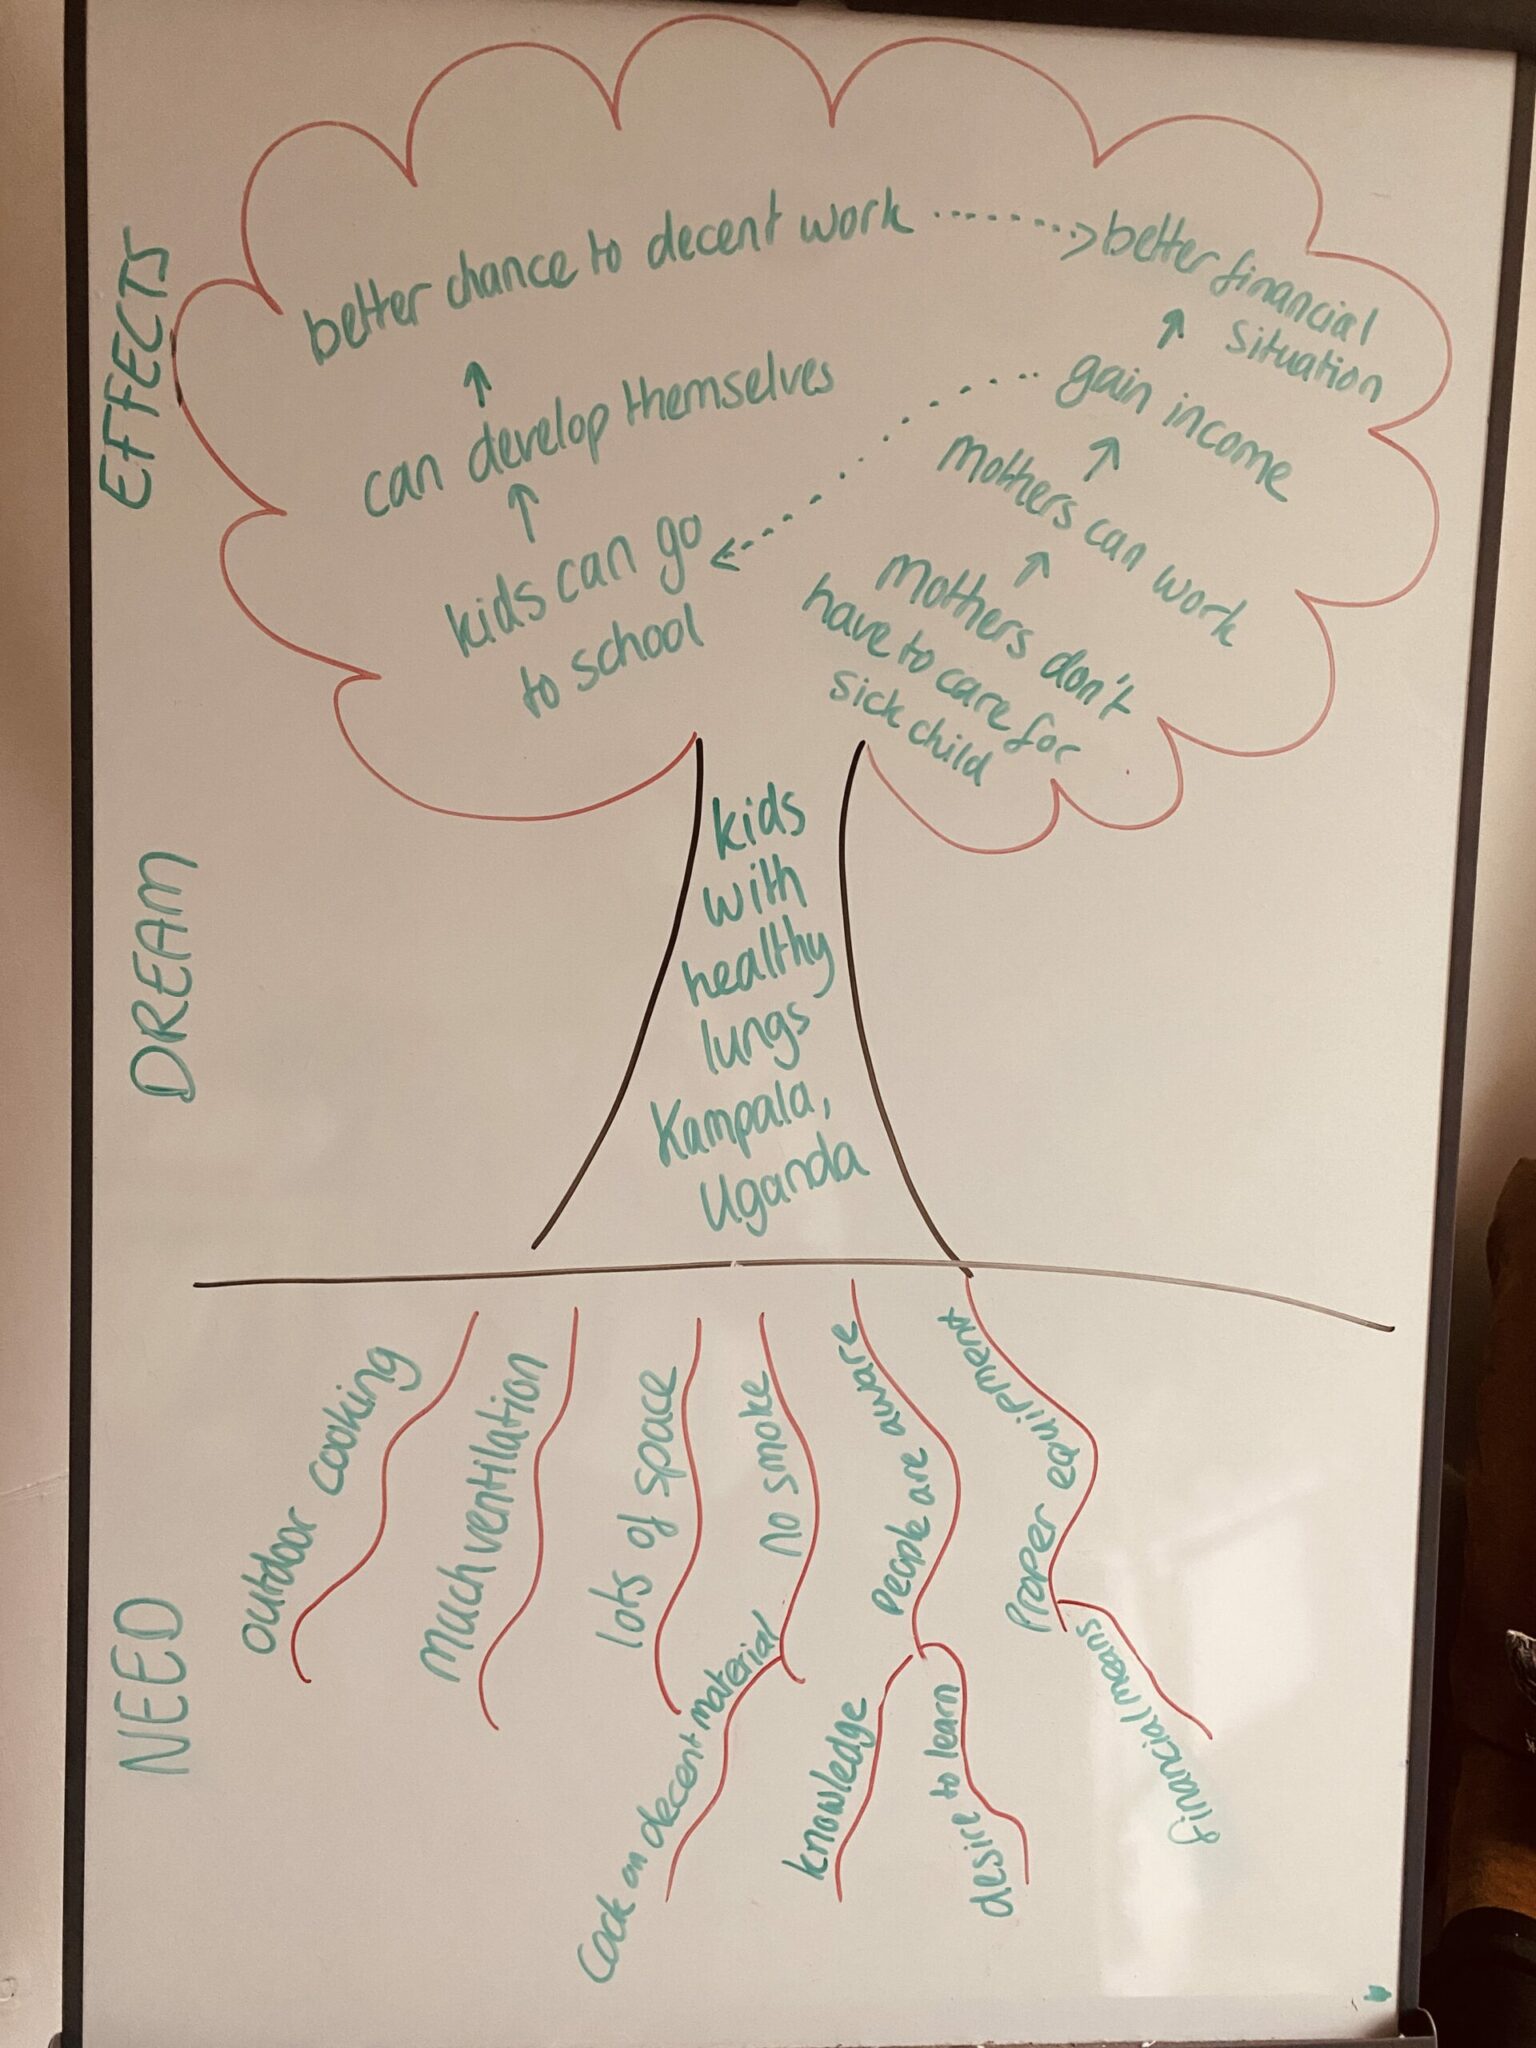 EFFECTS
better chance to decent work
better financial
situation
can develop themselves
gain income
kids can go
to school
mothers can work
mothers don't
have to care for
sick child
DREAM
kids
with
healthy
lungs
Kampala,
Uganda
NEED
outdoor cooking
much ventilation
lots of space
no smoke
cook on decent material
people are aware
knowledge
desire to learn
proper equipment
financial means